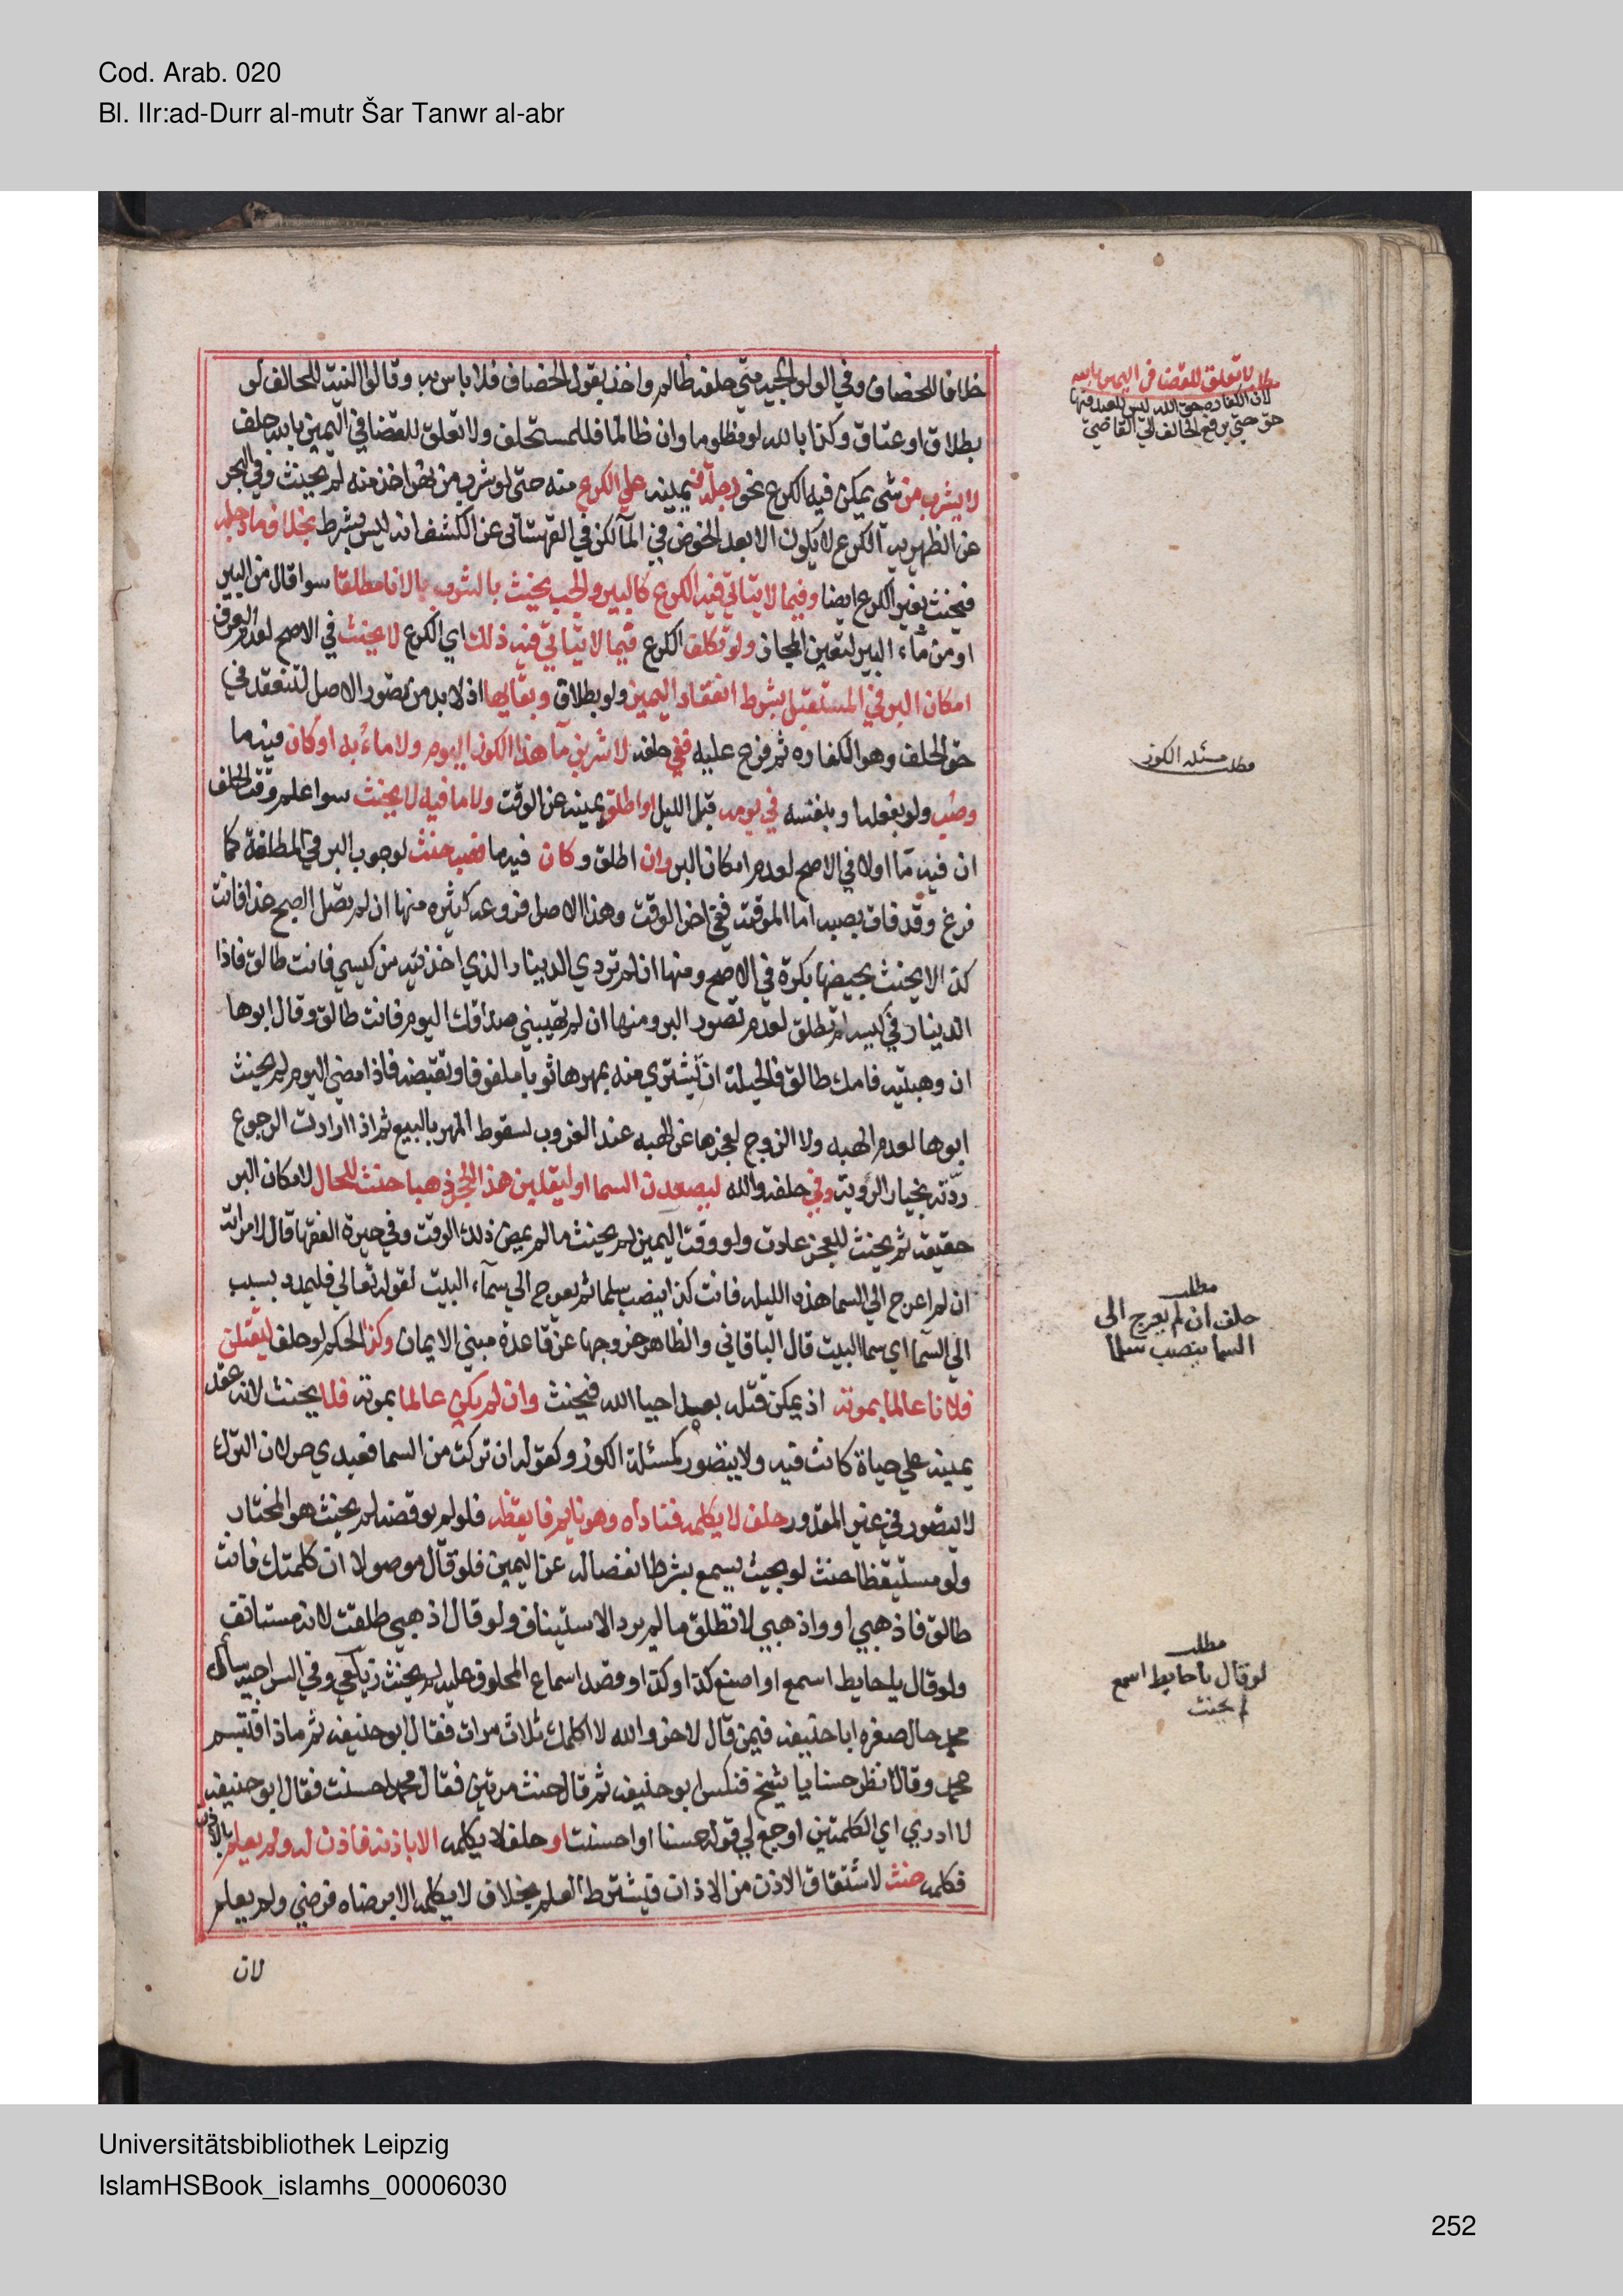 Cod. Arab. 020
Bl. IIr:ad-Durr al-mutr Šar Tanwr al-abr
خلافا للخصاف وفي الولوالجية متي حلفه ظالم واخذ بقول الخصاف فلا باس به وقالوا النية للحالف لو
بطلاق او عتاق وكذا بالله لو مظلوما وان ظالما فللمستحلف ولا تعلق للقضا في اليمين بالله حلف
لا يشرب من شي يمكن فيه الكرع نحو دجلة فيمينه علي الكرع منه حتى لو شرب من نهر اخذ منه لم يحنث وفي البحر
عن الظهيرية الكرع لا يكون الا بعد الخوض في الماء لكن في القهستاني عن الكشف انه ليس بشرط بخلاف ماء دجله
فيحنث بغير الكرع ايضا وفيما لا يتاتي فيه الكرع كالبير والحب يحنث بالشرب بالانا مطلقا سوا قال من البير
او من ماء البير لتعين المجاز ولو تكلف الكرع فيما لا يتاتي فيه ذلك اي الكرع لا يحنث في الاصح لعدم العرف
امكان البر في المستقبل شرط انعقاد اليمين ولو بطلاق وبقايها اذ لا بد من تصور الاصل لتنعقد في
حق الخلف وهو الكفاره ثم فرع عليه ففي حلفه لاشربن ماء هذا الكوز اليوم ولا ماء به او كان فيه ما
وصب ولو بفعلها وبنفسه في يومه قبل الليل او اطلق يمينه عن الوقت ولا ما فيه لا يحنث سوا علم وقت الحلف
ان فيه ما اولا في الاصح لعدم امكان البر وان اطلق وكان فيه ما فصب حنث لوجوب البر في المطلقة كما
فرغ وقد فات بصبه اما الموقت ففي اخر الوقت وهذا الاصل فروعه كثيره منها ان لم تصل الصبح غدا فانت
كذا لا يحنث بحيضها بكرة في الاصح ومنها ان لم تردي الدينار الذي اخذتيه من كيسي فانت طالق فاذا
الدينار في كيسه لم تطلق لعدم تصور البر ومنها ان لم تهبيني صداقك اليوم فانت طالق وقال ابوها
ان وهبتيه فامك طالق فالحيلة ان تشتري منه بمهرها ثوبا ملفوفا وتقبضه فاذا مضي اليوم لم يحنث
ابوها لعدم الهبه ولا الزوج لعجزها عن الهبه عند الغروب لسقوط المهر بالبيع ثم اذا ارادت الرجوع
ردته بخيار الرؤية وفي حلفه والله ليصعدن السما او ليقلبن هذا الحجر ذهبا حنث للحال لامكان البر
حقيقة ثم يحنث للعجز عادت ولو وقت اليمين لم يحنث ما لم يمض ذلك الوقت وفي حيرة الفقها قال لامراته
ان لم اعرج الي السما هذه الليله فانت كذا ينصب سلما ثم يعرج الي سماء البيت لقوله تعالي فليمدد بسبب
الي السما اي سما البيت قال الباقاني والظاهر خروجها عن قاعدة مبني الايمان وكذا الحكم لو حلف ليقتلن
فلانا عالما بموته اذ يمكن قتله بعد احيا الله فيحنث وان لم يكن عالما بموته فلا يحنث لانه عقد
يمينه علي حياة كانت فيه ولا يتصور كمسئلة الكوز وكقوله ان تركت من السما فعبدي حر لان الترك
لا يتصور في غير المقدور حلف لا يكلمه فناداه وهو نايم فايقظه فلو لم يوقضه لم يحنث هو المختار
ولو مستيقظا حنث لو بحيث يسمع بشرط انفصاله عن اليمين فلو قال موصولا ان كلمتك فانت
طالق فاذهبي او واذهبي لا تطلق ما لم يرد الاستيناف ولو قال اذهبي طلقت لانه مستانف
ولو قال يا حايط اسمع او اصنع كذا وكذا وقصد اسماع المحلوف عليه لم يحنث زيلعي وفي السراجية سال
محمد حال صغره ابا حنيفه فيمن قال لاخر والله لا اكلمك ثلاث مرات فقال ابو حنيفه ثم ماذا فتبسم
محمد وقال انظر حسنا يا شيخ فنكس ابو حنيفه ثم قال حنث مرتين فقال محمد احسنت فقال ابو حنيفه
لا ادري اي الكلمتين اوجع لي قوله حسنا او احسنت او حلف لا يكلمه الا باذنه فاذن له ولم يعلم بالاذن
فكلمه حنث لاشتقاق الاذن من الاذان فيشترط العلم بخلاف لا يكلمه الا برضاه فرضي ولم يعلم
لان
مطلب لا تعلق للقضا في اليمين بالله
لان الكفاره حق الله ليس للعبد فيها
حق حتي يرفع الحالف الي القاضي
مطلب مسئلة الكوز
مطلب
حلف ان لم يعرج الى
السما ينصب سلما
مطلب
لو قال يا حايط اسمع
لم يحنث
Universitätsbibliothek Leipzig
IslamHSBook_islamhs_00006030
252